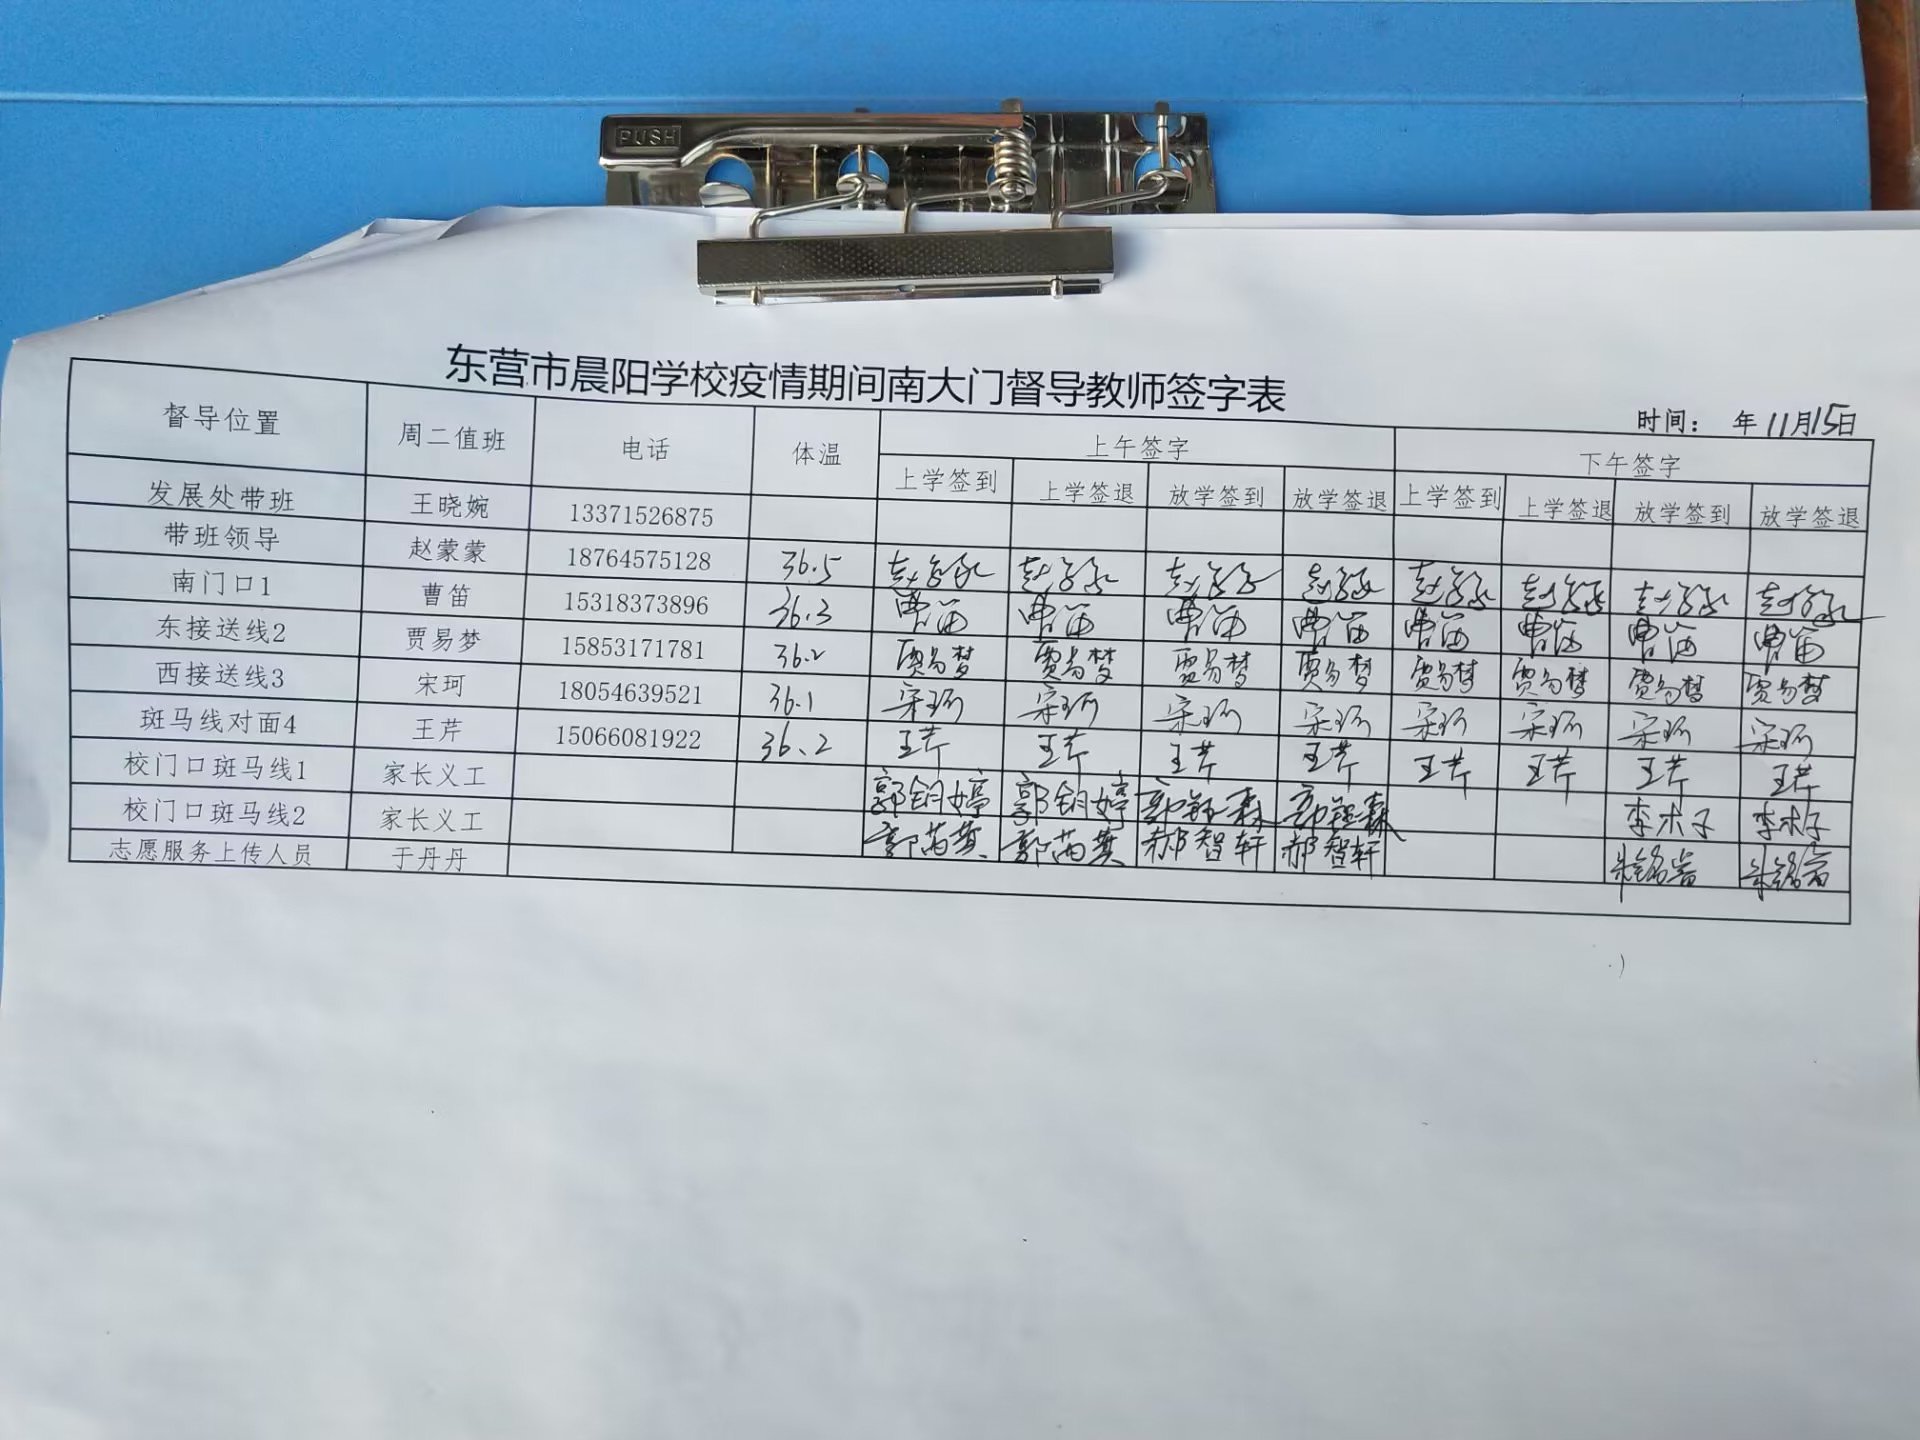 PUSH
东营市晨阳学校疫情期间南大门督导教师签字表
时间： 年11月15日
督导位置 周二值班 电话 体温 上午签字 下午签字
上学签到 上学签退 放学签到 放学签退 上学签到 上学签退 放学签到 放学签退
发展处带班 王晓婉 13371526875
带班领导 赵蒙蒙 18764575128 36.5 赵蒙蒙 赵蒙蒙 赵蒙蒙 赵蒙蒙 赵蒙蒙 赵蒙蒙 赵蒙蒙 赵蒙蒙
南门口1 曹笛 15318373896 36.3 曹笛 曹笛 曹笛 曹笛 曹笛 曹笛 曹笛 曹笛
东接送线2 贾易梦 15853171781 36.2 贾易梦 贾易梦 贾易梦 贾易梦 贾易梦 贾易梦 贾易梦 贾易梦
西接送线3 宋珂 18054639521 36.1 宋珂 宋珂 宋珂 宋珂 宋珂 宋珂 宋珂 宋珂
斑马线对面4 王芹 15066081922 36.2 王芹 王芹 王芹 王芹 王芹 王芹 王芹 王芹
校门口斑马线1 家长义工 李木子 李木子
校门口斑马线2 家长义工 郝智轩 郝智轩
志愿服务上传人员 于丹丹